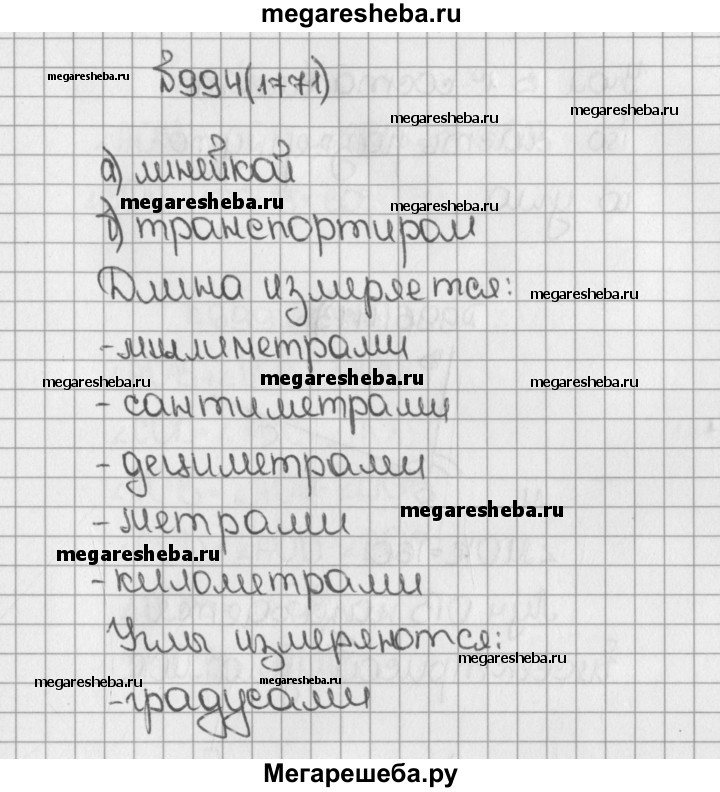 megaresheba.ru
megaresheba.ru
№994(1771)
megaresheba.ru
megaresheba.ru
а) линейкой
megaresheba.ru
megaresheba.ru
б) транспортиром
Длина измеряется:
megaresheba.ru
-милиметрами
megaresheba.ru
megaresheba.ru
megaresheba.ru
-сантиметрами
-дециметрами
-метрами
megaresheba.ru
megaresheba.ru
-километрами
Углы измеряются:
megaresheba.ru
megaresheba.ru
megaresheba.ru
-градусами
Мегарешеба.ру